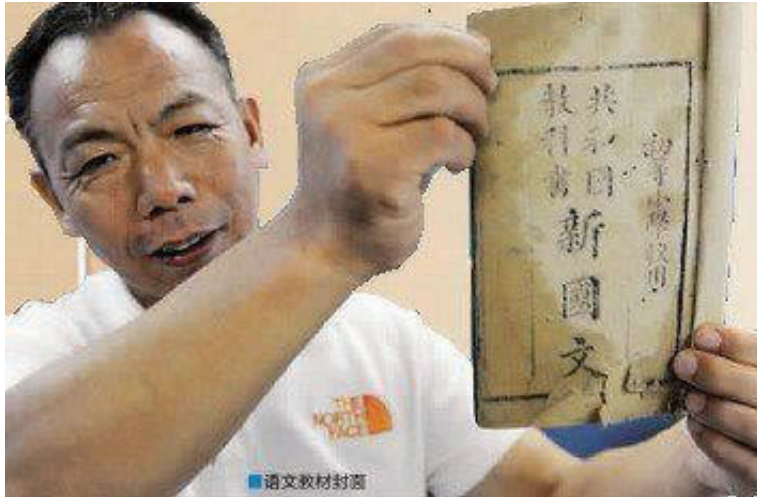 初等小學校用
共和国
教科書
新國文
THE
NORTH
FACE
語文教材封面